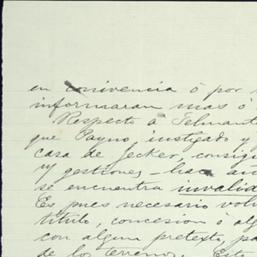 en connivencia ó por
informaran mas ó
Respecto á
que Payno, instigado y
casa de Jecker, consig
y gestiones,
se encuentra invalid
Es pues necesario volv
título, concesion ó alg
con algun pretexto, pa
de los terrenos. Este